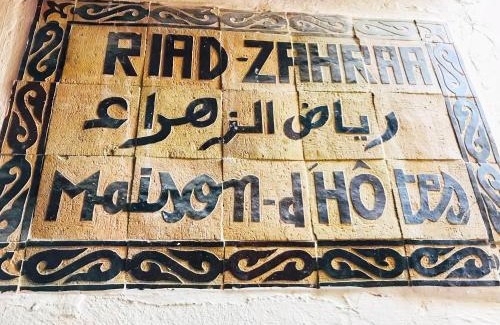 RIAD-ZAHRAA
رياض الزهراء
Maison-d'Hôtes